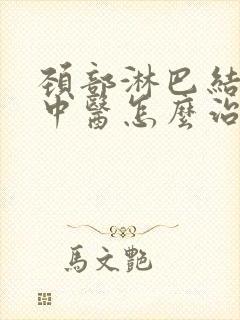 頚部淋巴結
中醫怎麼治
馬文艷